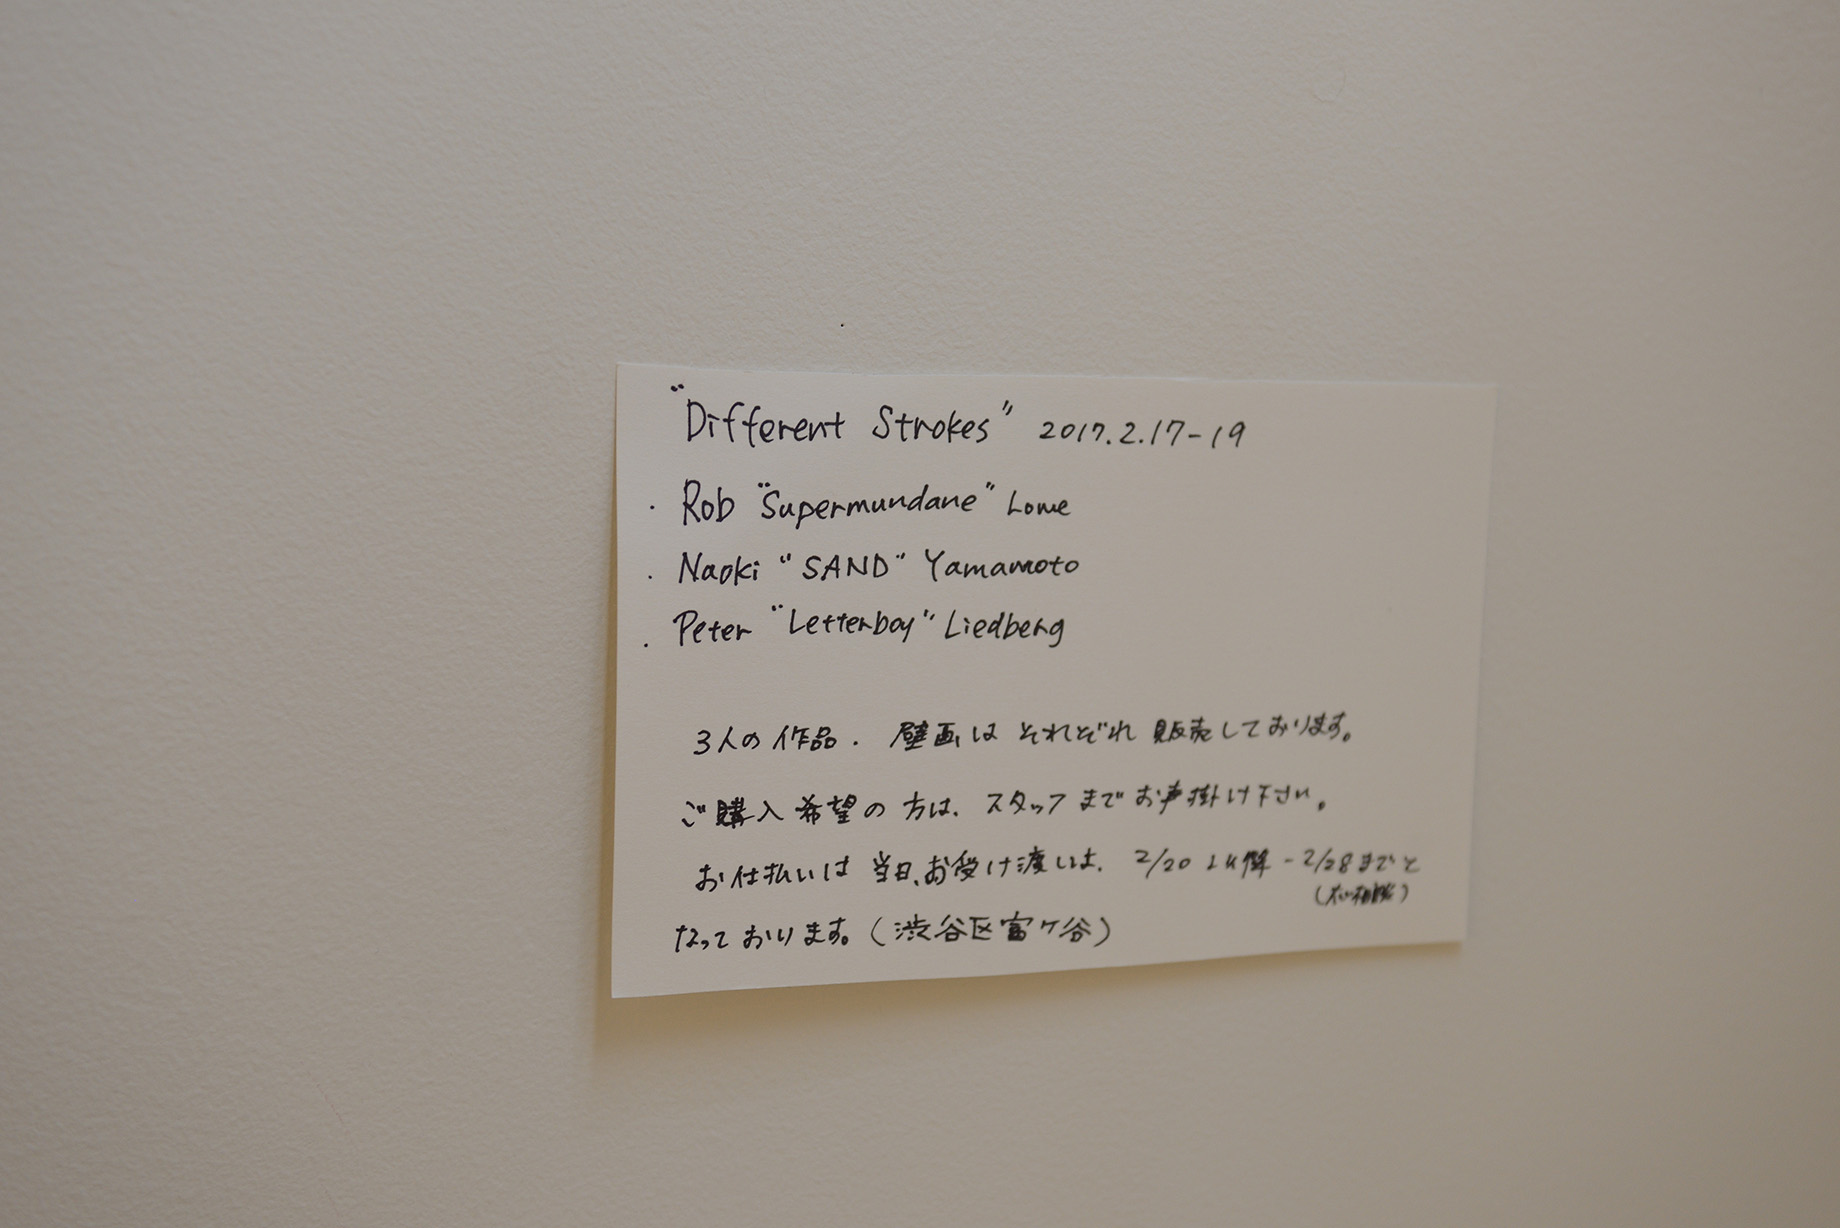 "Different Strokes" 2017.2.17-19
・Rob "Supermundane" Lowe
・Naoki "SAND" Yamamoto
・Peter "Letterboy" Liedberg
3人の作品. 壁画はそれぞれ販売しております。
ご購入希望の方は、スタッフまでお声掛け下さい。
お仕払いは当日、お受け渡しは、2/20以降-2/28までと
なっております。(渋谷区富ヶ谷)